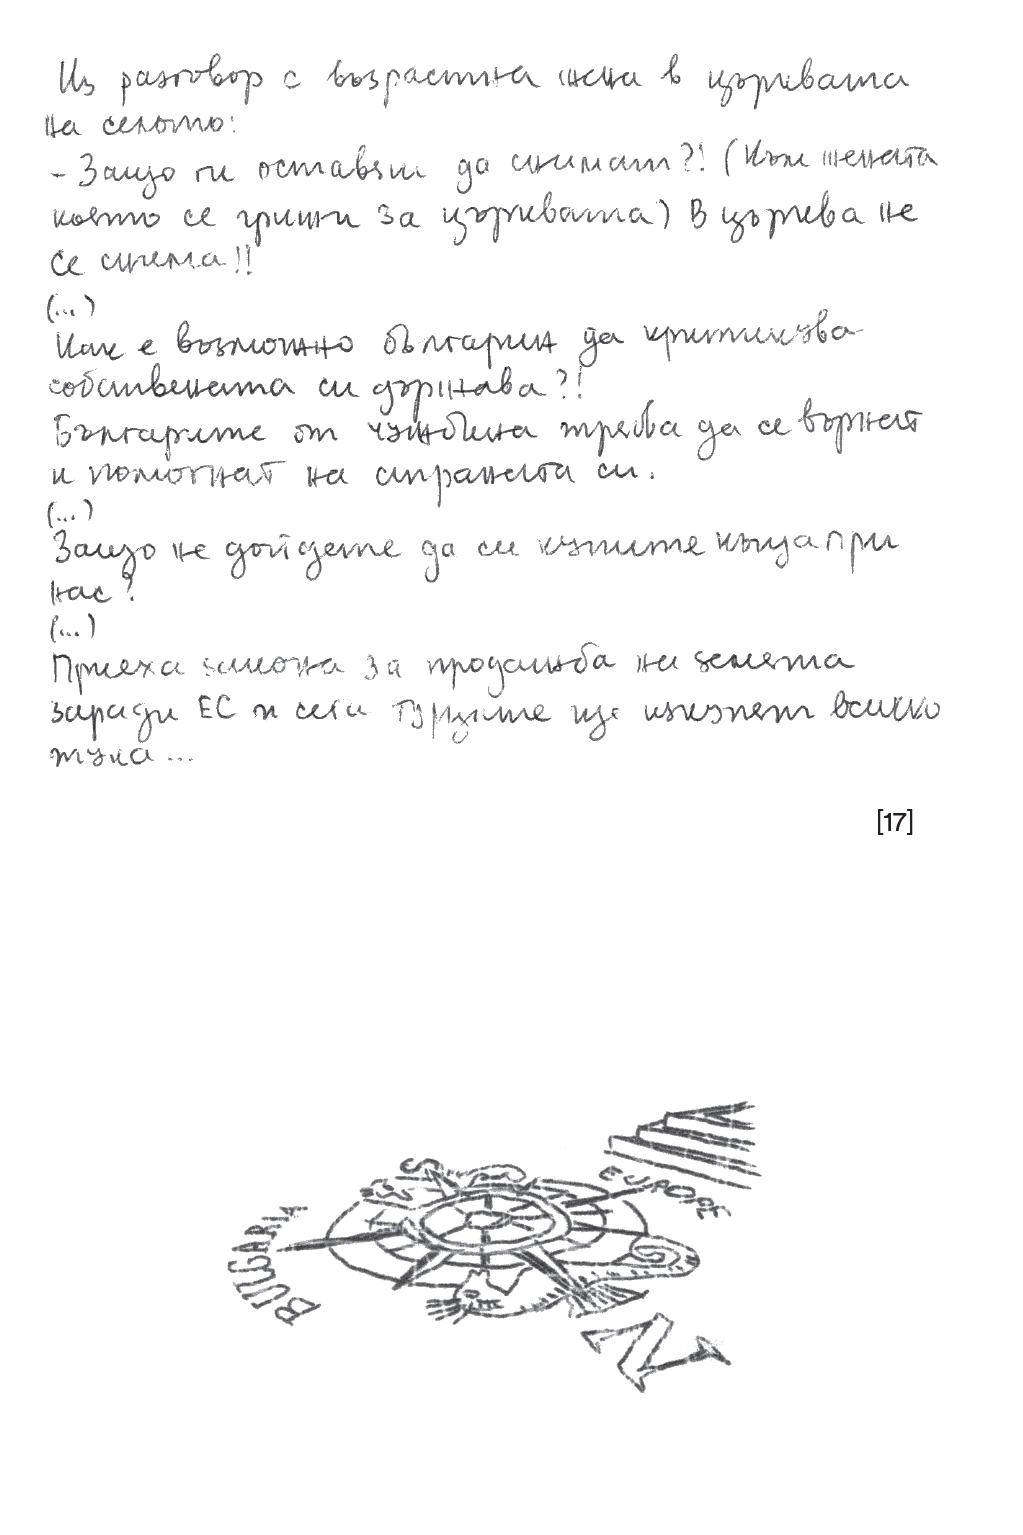 Из разговор с възрастна жена в църквата
на селото:
- Защо ги оставяш да снимат?! (Към жената
която се грижи за църквата) В църква не
се снема!!
(...)
Как е възможно българин да критикува
собствената си държава?!
Българите от чужбина трябва да се върнат
и помогнат на страната си.
(...)
Защо не дойдете да си купите къща при
нас?
(...)
Приеха закона за продажба на земята
заради ЕС и сега турците ще изкупят всичко
тука...
[17]
EUROPE
BULGARIA
N